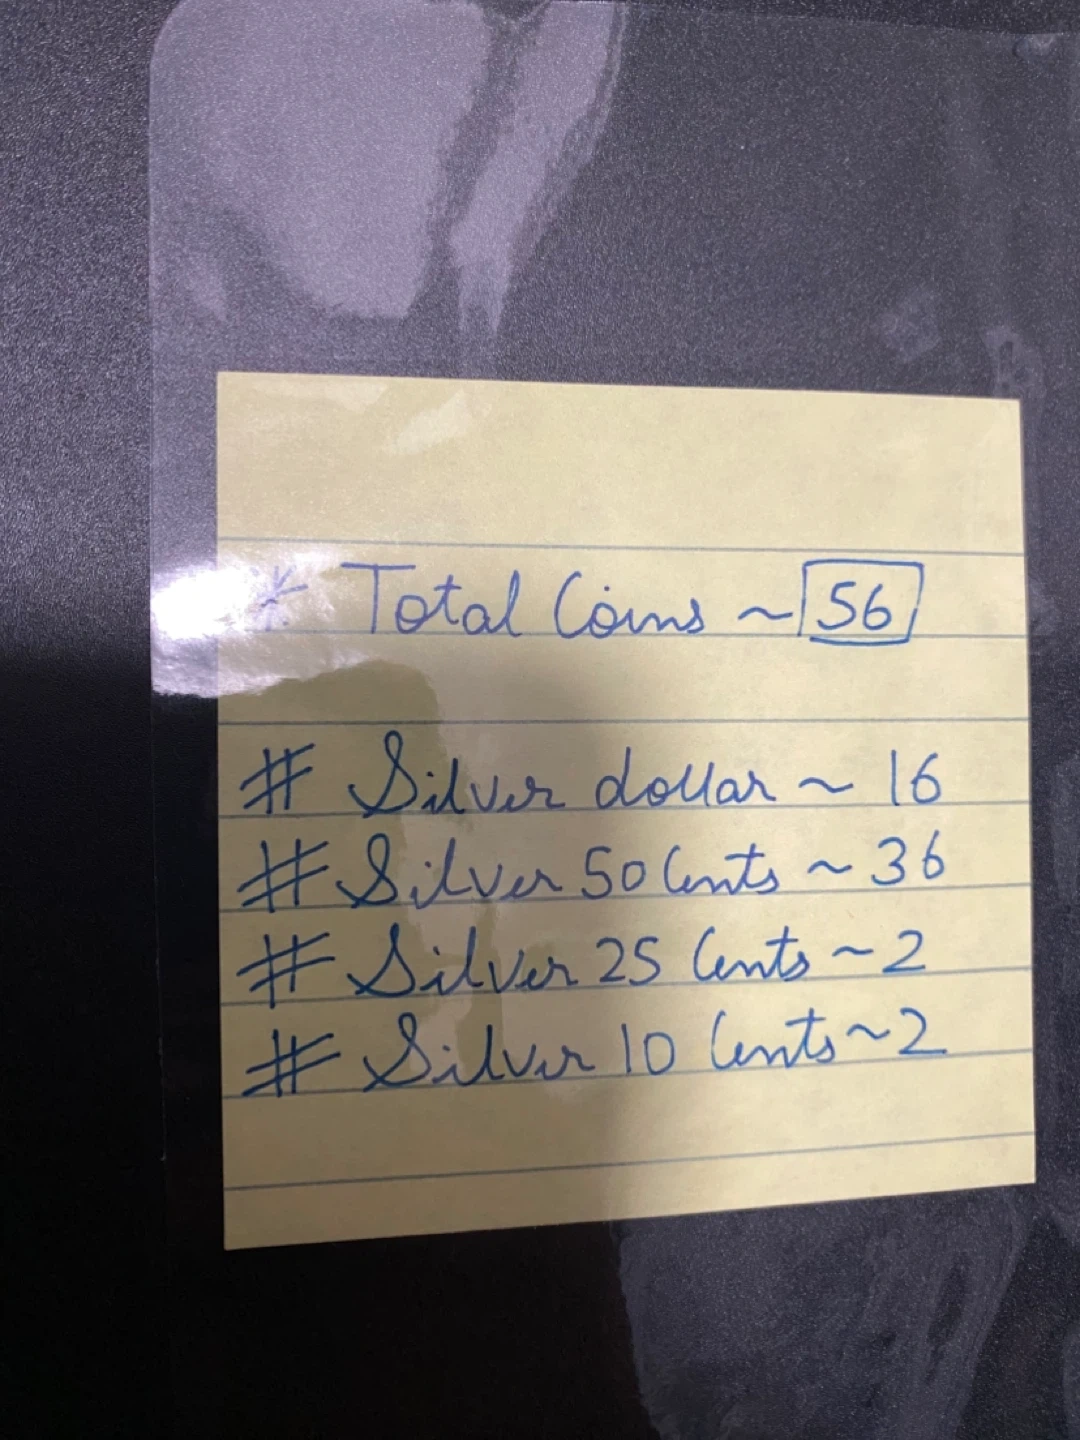 * Total Coins ~ 56
# Silver dollar ~ 16
# Silver 50 Cents ~ 36
# Silver 25 Cents ~ 2
# Silver 10 Cents ~ 2